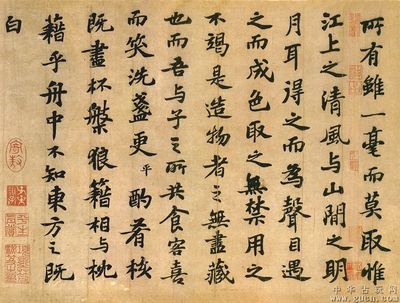 所有雖一毫而莫取惟
江上之清風与山間之明
月耳得之而為聲目遇
之而成色取之無禁用之
不竭是造物者之無盡藏
也而吾与子之所共食客喜
而笑洗盞更平酌肴核
既盡杯槃狼籍相与枕
藉乎舟中不知東方之既
白
中华古玩网
www.gucn.com